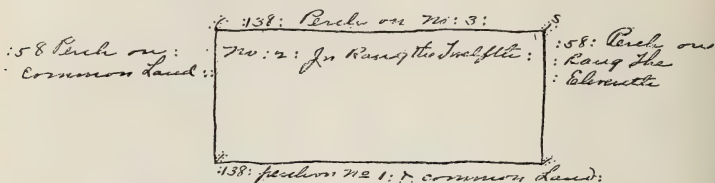 :138: Perch on No: 3:
S
:58 Perch on:
Common Land::
No: 2: In Rang the Twelfth:
:58: Perch on
: Rang The
: Eleventh
:138: perch on No 1: & common Land: